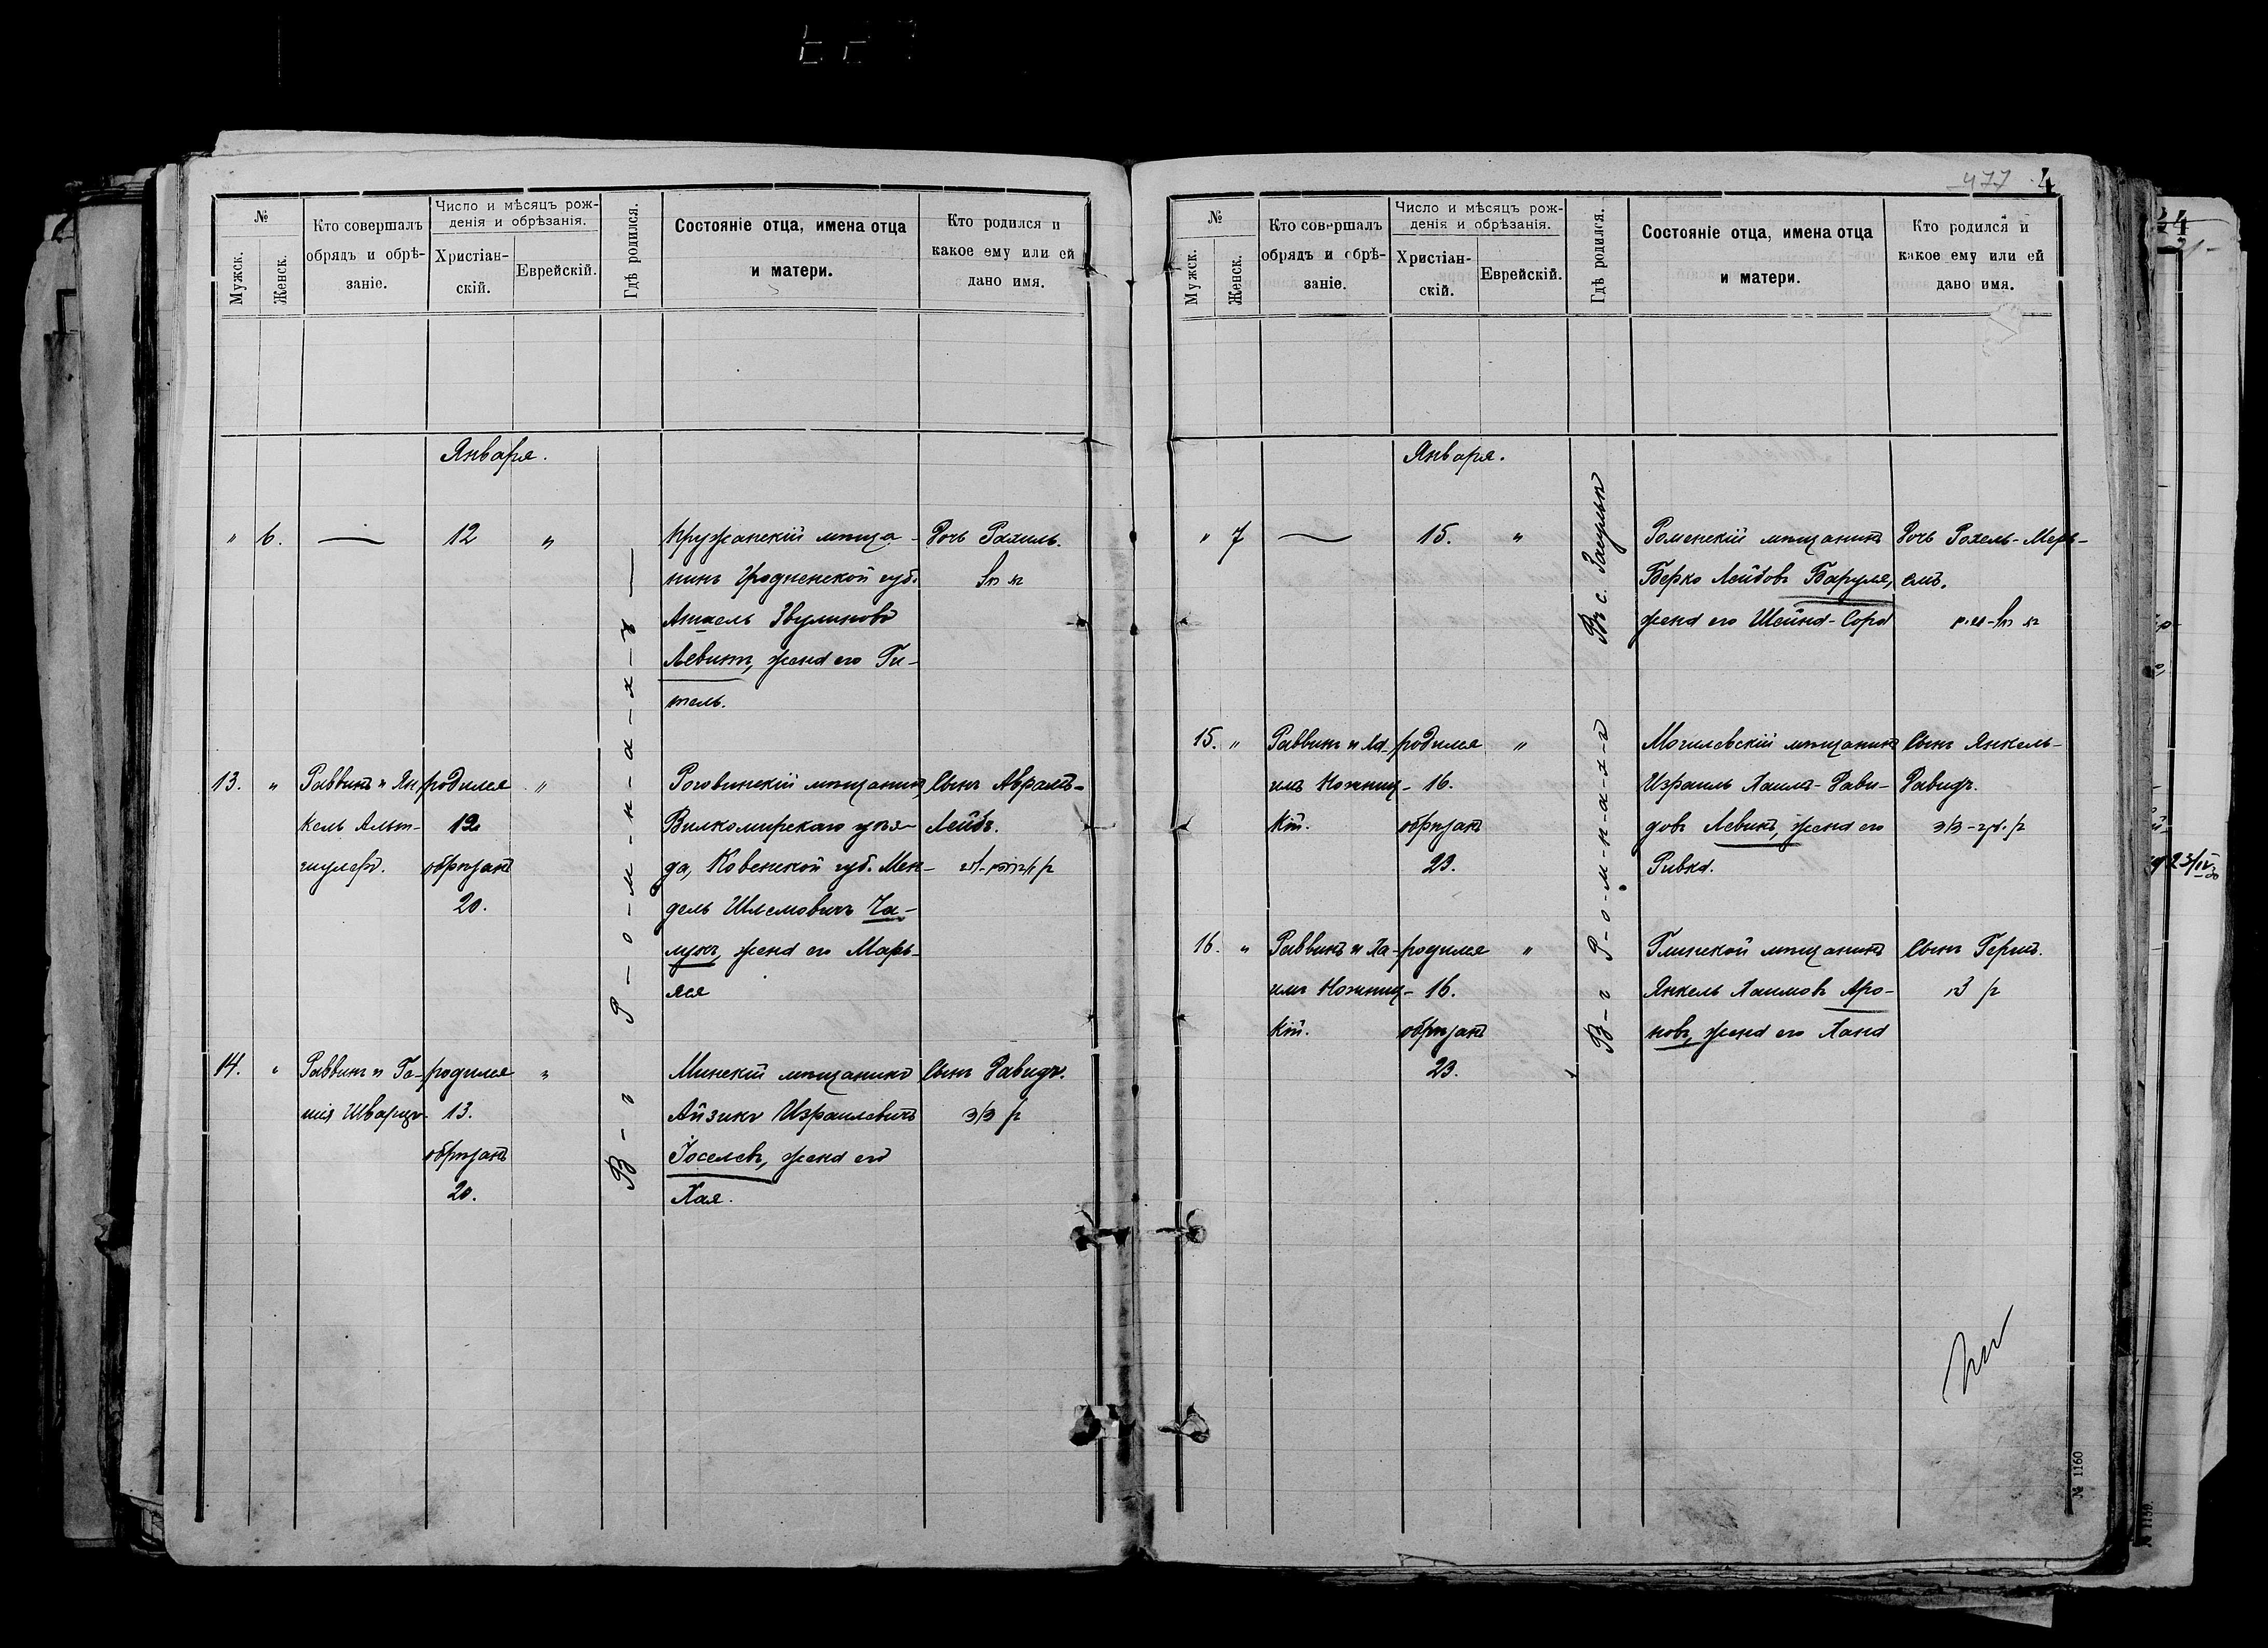 №
Мужск.
Женск.
Кто совершалъ
обрядъ и обрѣ-
заніе.
Число и мѣсяцъ рож-
денія и обрѣзанія.
Христіан-
скій.
Еврейскій.
Гдѣ родился.
Состояніе отца, имена отца
и матери.
Кто родился и
какое ему или ей
дано имя.
Января.
" 6. — 12 "
Пружанскій мѣща-
нинъ Гродненской губ.
Левитъ, жена его Ги-
тель.
Дочь Рахиль.
13. "
Раввинъ и Ян
кель Альт-
шулеръ.
родился "
12
обрѣзанъ
20.
Роговинскій мѣщанинъ
Вилкомирскаго уѣз-
да, Ковенской губ. Мен-
дель Шлемовичъ
жена его Марь-
яся
Сынъ Аврамъ-
Лейбъ.
14. "
Раввинъ и
Шварцъ
родился "
13.
обрѣзанъ
20.
Минскій мѣщанинъ
Айзикъ Израилевичъ
Іоселевъ, жена его
Хая.
Сынъ Давидъ.
В-ъ Р-о-м-н-а-х-ъ
477 4
№
Мужск.
Женск.
Кто совершалъ
обрядъ и обрѣ-
заніе.
Число и мѣсяцъ рож-
денія и обрѣзанія.
Христіан-
скій.
Еврейскій.
Гдѣ родился.
Состояніе отца, имена отца
и матери.
Кто родился и
какое ему или ей
дано имя.
Января.
" 7 — 15. "
Въ с.
Роменскій мѣщанинъ
Берко Лейбовъ Баруля,
жена его Шейна-Сора
Дочь Рохель-Мерь-
емъ.
15. "
Раввинъ и Ха-
имъ Ножниц-
кій.
родился "
16.
обрѣзанъ
23.
Могилевскій мѣщанинъ
Израиль Хаимъ-Дави-
довъ Левинъ, жена его
Ривка.
Сынъ Янкель-
Давидъ.
16. "
Раввинъ и Ха-
имъ Ножниц-
кій.
родился "
16.
обрѣзанъ
23.
Глинской мѣщанинъ
Янкель Хаимовъ Аро-
новъ, жена его Хана
Сынъ Гершъ.
В-ъ Р-о-м-н-а-х-ъ
№ 1160